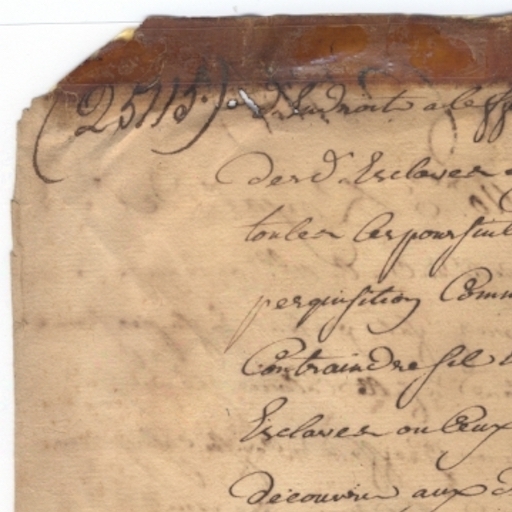 (25115.) d'Endroits a leff
des d. Esclaves
toutes les poursuit
perquisition Comm
Contraindre sil
Esclaves ou Ceux
découvrir aux d